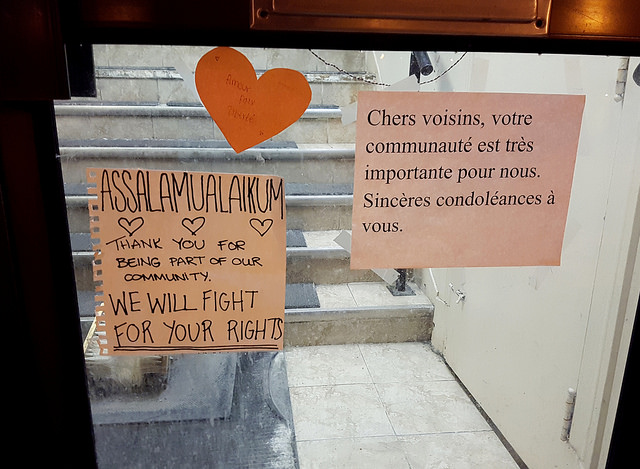 "
Amour
paix
"
Chers voisins, votre
communauté est très
importante pour nous.
Sincères condoléances à
vous.
ASSALAMUALAIKUM
THANK YOU FOR
BEING PART OF OUR
COMMUNITY.
WE WILL FIGHT
FOR YOUR RIGHTS